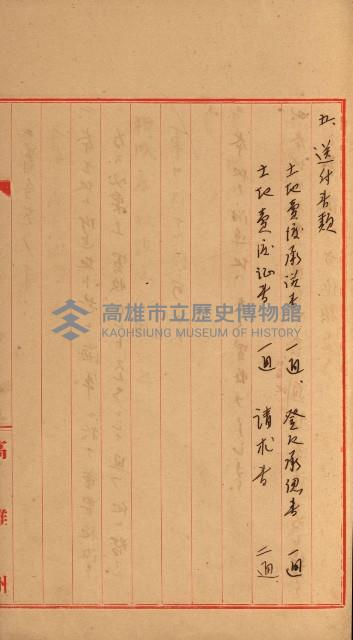 五、送付書類
土地賣渡承諾書 一通、登記承認書 一通
土地賣渡証書 一通 請求書 二通
高雄市立歷史博物館
KAOHSIUNG MUSEUM OF HISTORY
高雄州